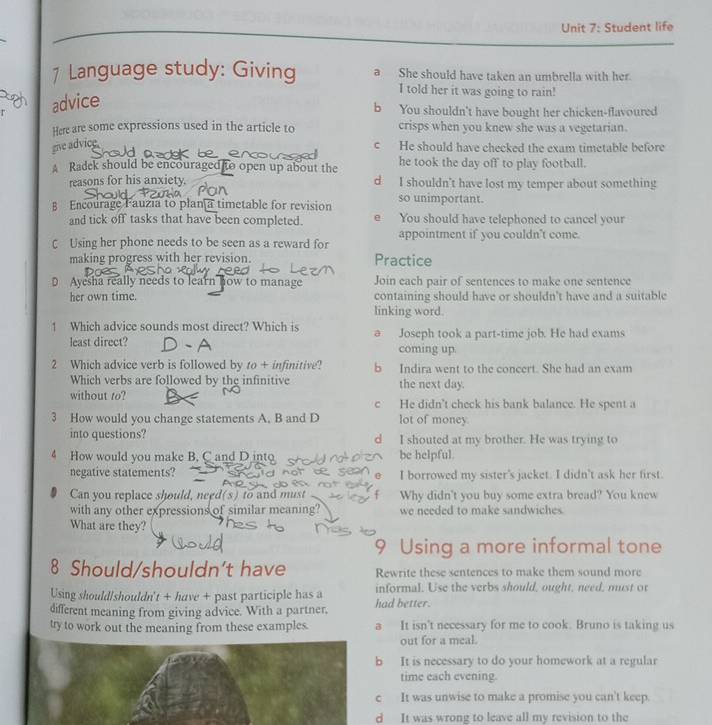 Unit 7: Student life
7 Language study: Giving
advice
Here are some expressions used in the article to
give advice.
Should Radek be encouraged
A Radek should be encouraged to open up about the
reasons for his anxiety.
Should Fauzia plan
B Encourage Fauzia to plan a timetable for revision
and tick off tasks that have been completed.
C Using her phone needs to be seen as a reward for
making progress with her revision.
Does Ayesha really need to learn
D Ayesha really needs to learn how to manage
her own time.
1 Which advice sounds most direct? Which is
least direct?
D - A
2 Which advice verb is followed by to + infinitive?
Which verbs are followed by the infinitive
without to?
NO
3 How would you change statements A, B and D
into questions?
4 How would you make B, C and D into
should not plan
negative statements?
should not be seen
Can you replace should, need(s) to and must
with any other expressions of similar meaning?
What are they?
has to
has to
would
8 Should/shouldn't have
Using should/shouldn't + have + past participle has a
different meaning from giving advice. With a partner,
try to work out the meaning from these examples.
a She should have taken an umbrella with her.
I told her it was going to rain!
b You shouldn't have bought her chicken-flavoured
crisps when you knew she was a vegetarian.
c He should have checked the exam timetable before
he took the day off to play football.
d I shouldn't have lost my temper about something
so unimportant.
e You should have telephoned to cancel your
appointment if you couldn't come.
Practice
Join each pair of sentences to make one sentence
containing should have or shouldn't have and a suitable
linking word.
a Joseph took a part-time job. He had exams
coming up.
b Indira went to the concert. She had an exam
the next day.
c He didn't check his bank balance. He spent a
lot of money.
d I shouted at my brother. He was trying to
be helpful.
e I borrowed my sister's jacket. I didn't ask her first.
f Why didn't you buy some extra bread? You knew
we needed to make sandwiches.
9 Using a more informal tone
Rewrite these sentences to make them sound more
informal. Use the verbs should, ought, need, must or
had better.
a It isn't necessary for me to cook. Bruno is taking us
out for a meal.
b It is necessary to do your homework at a regular
time each evening.
c It was unwise to make a promise you can't keep.
d It was wrong to leave all my revision to the